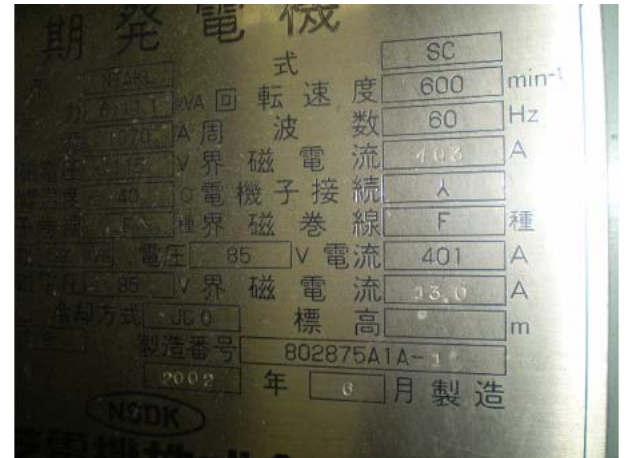 期発電機
NTAKL 式 SC
力 kVA 回転速度 600 min-1
1070 A 周波数 60 Hz
圧 V 界磁電流 403 A
度 40 ℃ 電機子接続 人
F 種 界磁巻線 F 種
電圧 85 V 電流 401 A
圧 85 V 界磁電流 13.0 A
冷却方式 JC0 標高 m
製造番号 802875A1A-1
2002 年 6 月製造
NSDK